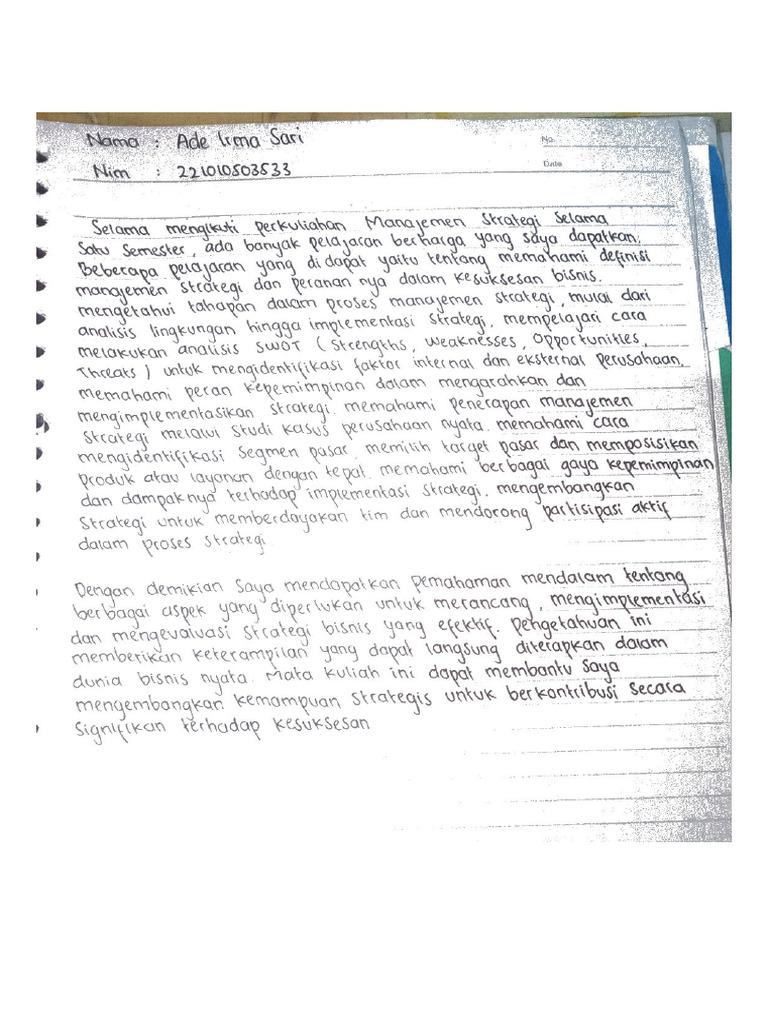 Nama : Ade Irma Sari
No.
Nim : 221010503533
Date
Selama mengikuti perkuliahan Manajemen Strategi Selama
Satu Semester, ada banyak pelajaran berharga yang saya dapatkan.
Beberapa pelajaran yang di dapat yaitu tentang memahami definisi
manajemen strategi dan peranan nya dalam kesuksesan bisnis.
mengetahui tahapan dalam proses manajemen strategi, mulai dari
analisis lingkungan hingga implementasi strategi, mempelajari cara
melakukan analisis SWOT (Strengths, Weaknesses, Opportunities,
Threats) untuk mengidentifikasi faktor internal dan eksternal perusahaan,
memahami peran kepemimpinan dalam mengarahkan dan
mengimplementasikan strategi. memahami penerapan manajemen
Strategi melalui studi kasus perusahaan nyata. memahami cara
mengidentifikasi segmen pasar, memilih target pasar dan memposisikan
produk atau layanan dengan tepat. memahami berbagai gaya kepemimpinan
dan dampaknya terhadap implementasi strategi. mengembangkan
Strategi untuk memberdayakan tim dan mendorong partisipasi aktif
dalam proses strategi.
Dengan demikian Saya mendapatkan pemahaman mendalam tentang
berbagai aspek yang diperlukan untuk merancang, mengimplementasi
dan mengevaluasi strategi bisnis yang efektif. Pengetahuan ini
memberikan keterampilan yang dapat langsung diterapkan dalam
dunia bisnis nyata. Mata kuliah ini dapat membantu saya
mengembangkan kemampuan strategis untuk berkontribusi secara
Signifikan terhadap kesuksesan